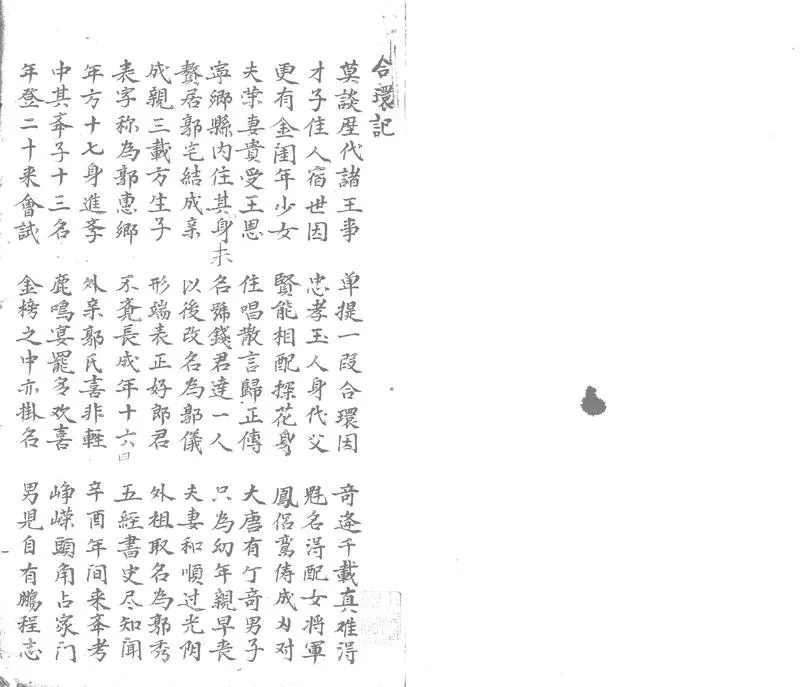 合環記
莫談歴代諸王事 单提一段合環因 奇逢千載真难淂
才子佳人宿世因 忠孝玉人身代父 魁名淂配女將軍
更有金闺年少女 賢能相配探花身 鳳侣鸞俦成刄对
夫荣妻貴受王恩 住唱散言歸正傳 大唐有亇奇男子
寧鄉縣内住其身 名號錢君達一人 只為幼年親早丧
贅居郭宅結成亲 以後改名為郭儀 夫妻和順过光阴
成親三載方生子 形端表正好郎君 外祖取名為郭秀
表字称為郭惠鄉 不覔長成年十六 五經書史尽知聞
年方十七身進斈 外亲郭氏喜非輕 辛酉年间来斈考
中其斈子十三名 鹿鳴宴罷多欢喜 峥嵘頭角占家门
年登二十来會試 金榜之中亦掛名 男児自有鵬程志